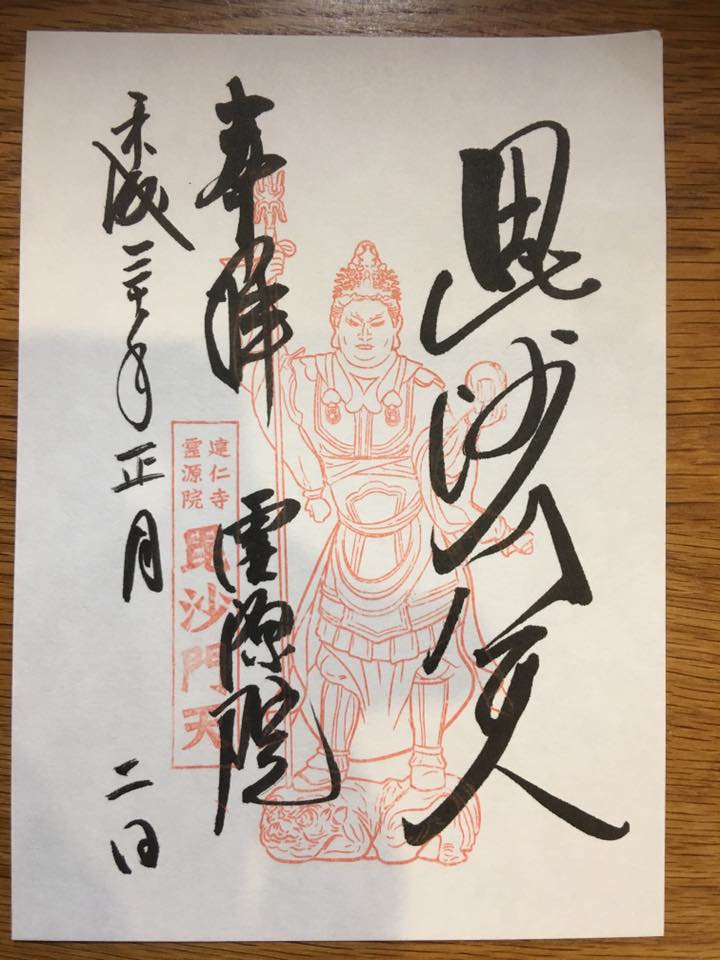 毘沙門天
奉拝 霊源院
建仁寺
霊源院
毘沙門天
平成三十年正月二日